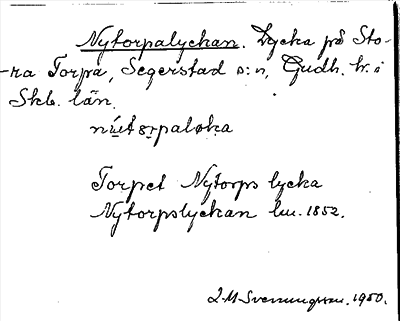 Nytorpalyckan. Lycka på Sto-
-ra Torpa, Segerstad s:n, Gudh. hr. i
Skb. län.
Torpet Nytorps lycka
Nytorpslyckan lm. 1852.
J M Svenungsson. 1950.